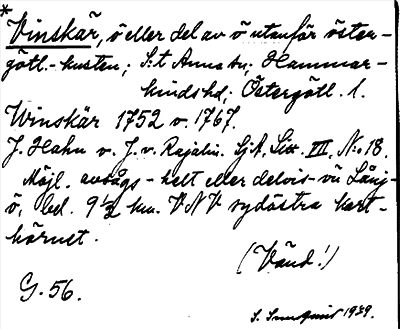 * Vinskär, ö eller del av ö utanför öster-
götl.-kusten; S:t Anna sn; Hammar-
kinds hd; Östergötl. l.
Winskär 1752 v. 1767.
J. Hahn v. J. v. Rajalin. SjA, Litt. VII, N:o 18.
Möjl. avsågs - helt eller delvis - ön Lång-
ö, bel. 9½ km. VNV sydöstra kart-
hörnet.
(Vänd!)
G. 56.
S. Sundquist 1939.